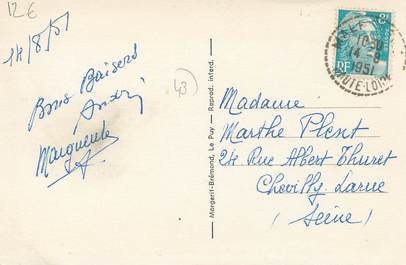 12€
14/8/51
Bons Baisers
André
Marguerite
43
Margerit-Brémond, Le Puy — Reprod. interd.
8F
RF
14-8
1951
HTE-LOIRE
Madame
Marthe
24 Rue Albert Thuret
Chevilly-Larue
(Seine)